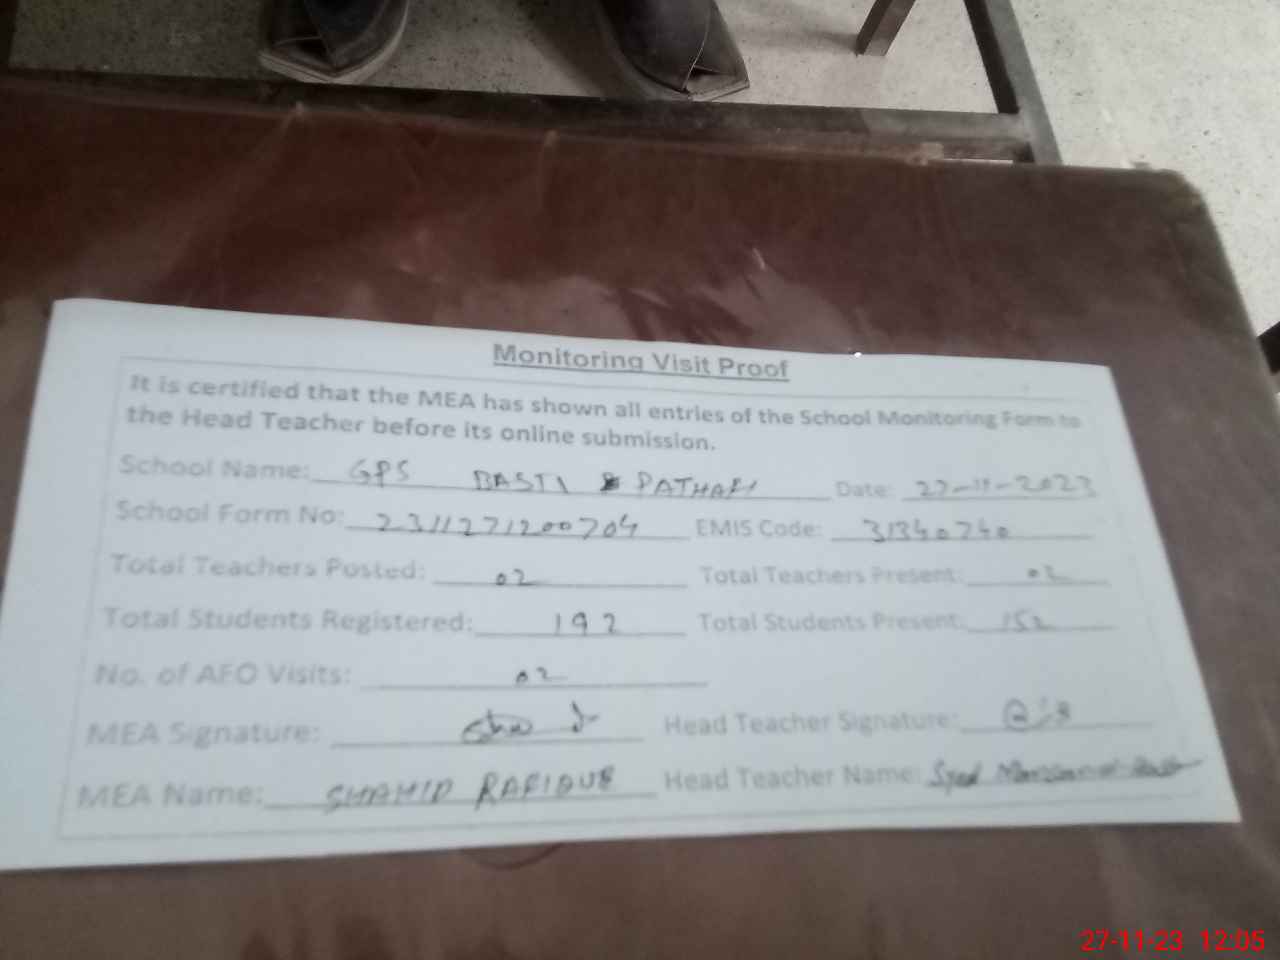 Monitoring Visit Proof
It is certified that the MEA has shown all entries of the School Monitoring Form to
the Head Teacher before its online submission.
School Name: GPS BASTI PATHAFI Date: 27-11-2023
School Form No: 2311271200704 EMIS Code: 31340740
Total Teachers Posted: 02 Total Teachers Present: 02
Total Students Registered: 192 Total Students Present: 152
No. of AEO Visits: 02
MEA Signature: Head Teacher Signature:
MEA Name: SHAHID RAFIQUE Head Teacher Name: Syed
27-11-23 12:05